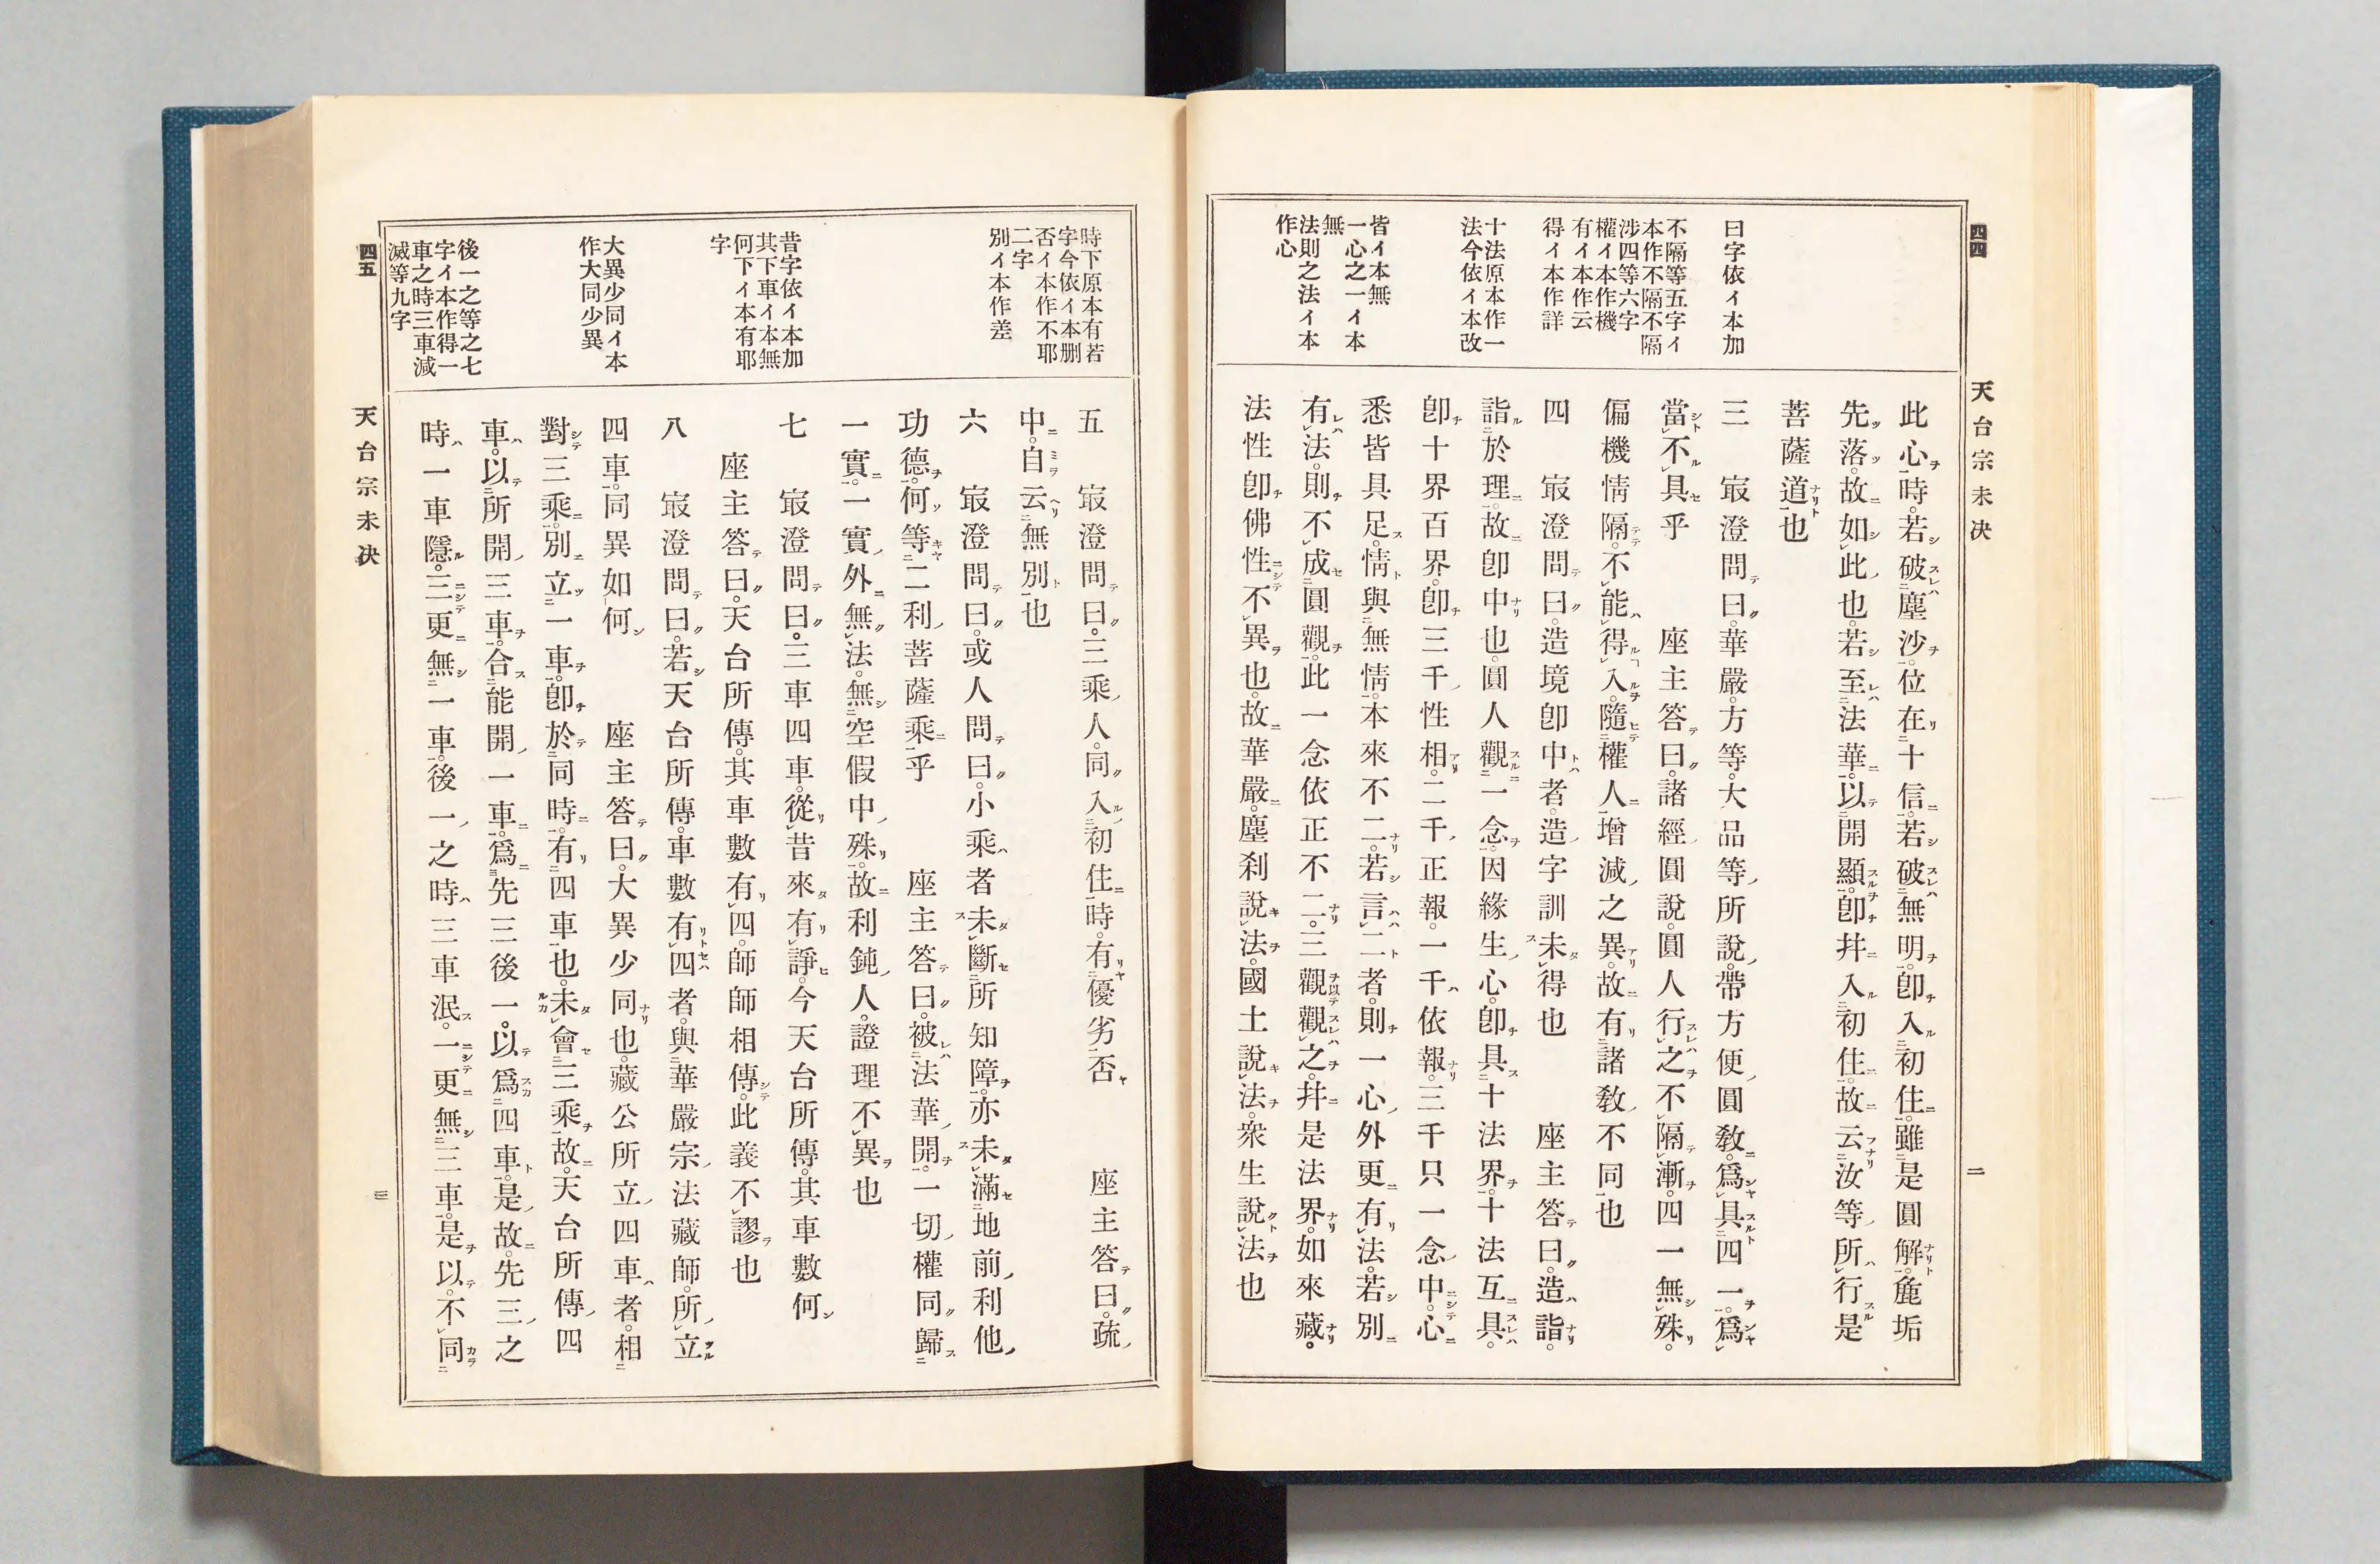 四四
天台宗未决
二
曰字依イ本加
不隔等五字イ
本作不隔不隔
涉四等六字
權イ本作機
有イ本作云
得イ本作詳
十法原本作一
法今依イ本改
皆イ本無
一心之一イ本
無
法則之法イ本
作心
此心時。若破塵沙。位在十信。若破無明。卽入初住。雖是圓解。麁垢
先落。故如此也。若至法華。以開顯。卽幷入初住。故云汝等所行是
菩薩道也
三　寂澄問曰。華嚴。方等。大品等所說。帶方便圓敎。爲具四一。爲
當不具乎　　座主答曰。諸經圓說。圓人行之。不隔漸。四一無殊。
偏機情隔。不能得入。隨權人增減之異。故有諸敎不同也
四　寂澄問曰。造境卽中者。造字訓未得也　　座主答曰。造詣。
詣於理。故卽中也。圓人觀一念。因緣生心。卽具十法界。十法互具。
卽十界百界。卽三千性相。二千正報。一千依報。三千只一念中。心
悉皆具足。情與無情。本來不二。若言二者。則一心外更有法。若別
有法。則不成圓觀。此一念依正不二。三觀觀之。幷是法界。如來藏。
法性卽佛性不異也。故華嚴。塵刹說法。國土說法。衆生說法也
時下原本有若
字今依イ本刪
否イ本作不耶
二字
別イ本作差
昔字依イ本加
其下車イ本無
何下イ本有耶
字
大異少同イ本
作大同少異
後一之等之七
字イ本作得一
車之時三車減
滅等九字
五　寂澄問曰。三乘人。同入初住時。有優劣否　　座主答曰。疏
中。自云無別也
六　寂澄問曰。或人問曰。小乘者未斷所知障。亦未滿地前利他
功德。何等二利菩薩乘乎　　座主答曰。被法華開。一切權同歸
一實。一實外無法。無空假中殊。故利鈍人。證理不異也
七　寂澄問曰。三車四車。從昔來有諍。今天台所傳。其車數何
座主答曰。天台所傳。其車數有四。師師相傳。此義不謬也
八　寂澄問曰。若天台所傳。車數有四者。與華嚴宗法藏師所立
四車。同異如何　　座主答曰。大異少同也。藏公所立四車者。相
對三乘。別立一車。卽於同時。有四車也。未會三乘。故天台所傳四
車。以所開三車。合能開一車。爲先三後一。以爲四車。是故。先三之
時。一車隱。三更無一車。後一之時。三車泯。一更無三車。是以不同
天台宗未决
四五
三